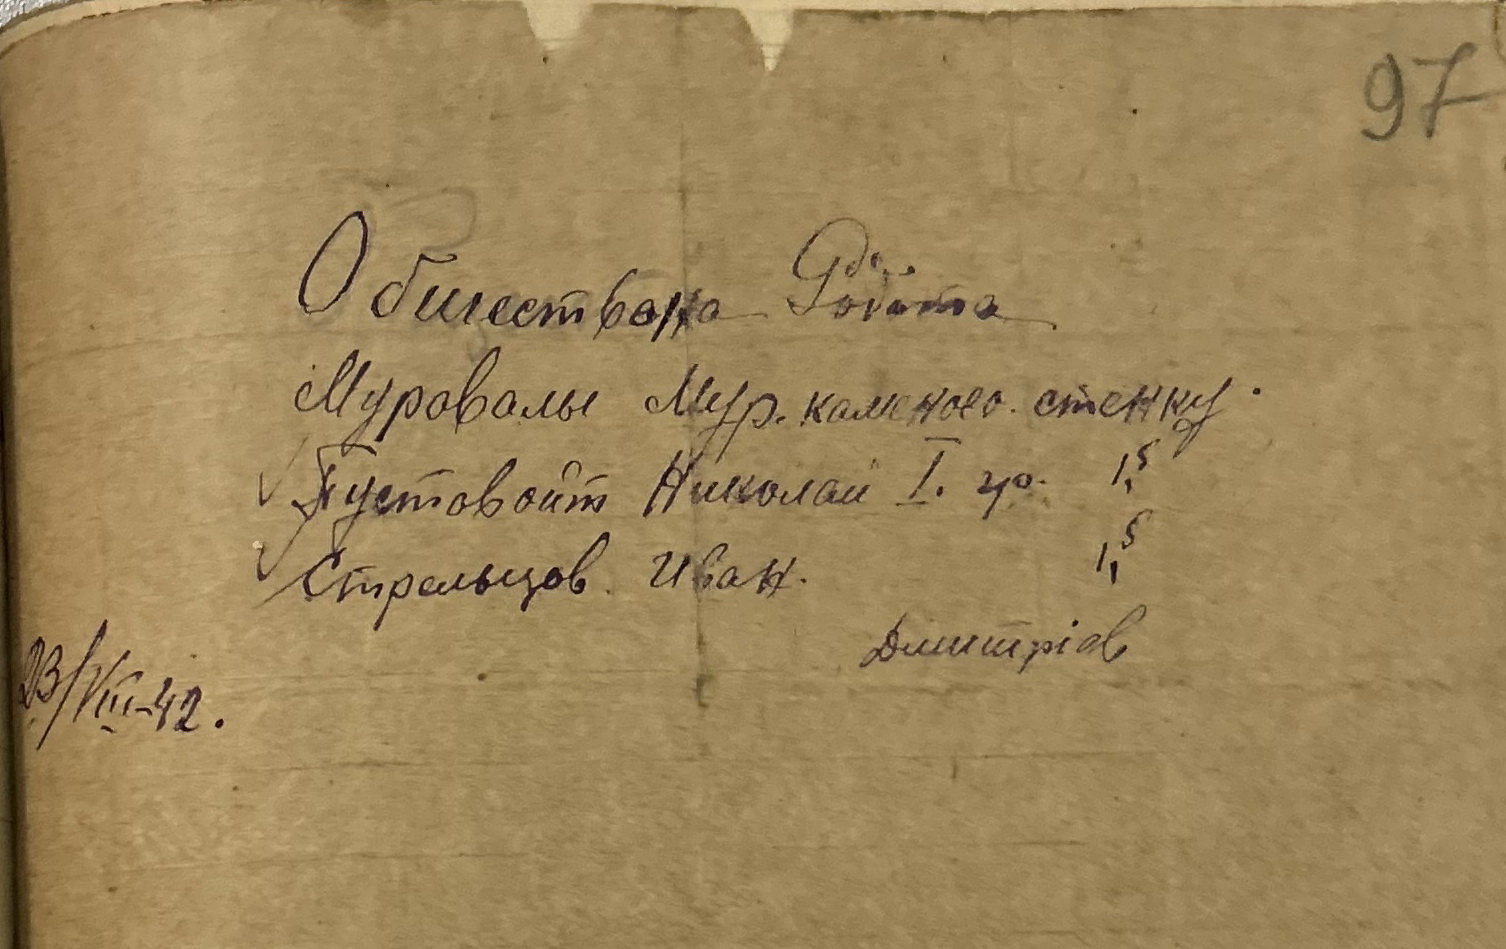 97
Обшествена Робота
Муровалы Мур. каменою. стенку.
Пустовойт Николай I. гр. 1,5
Стрельцов. Иван. 1,5
Дмитріев
23/VIII-42.